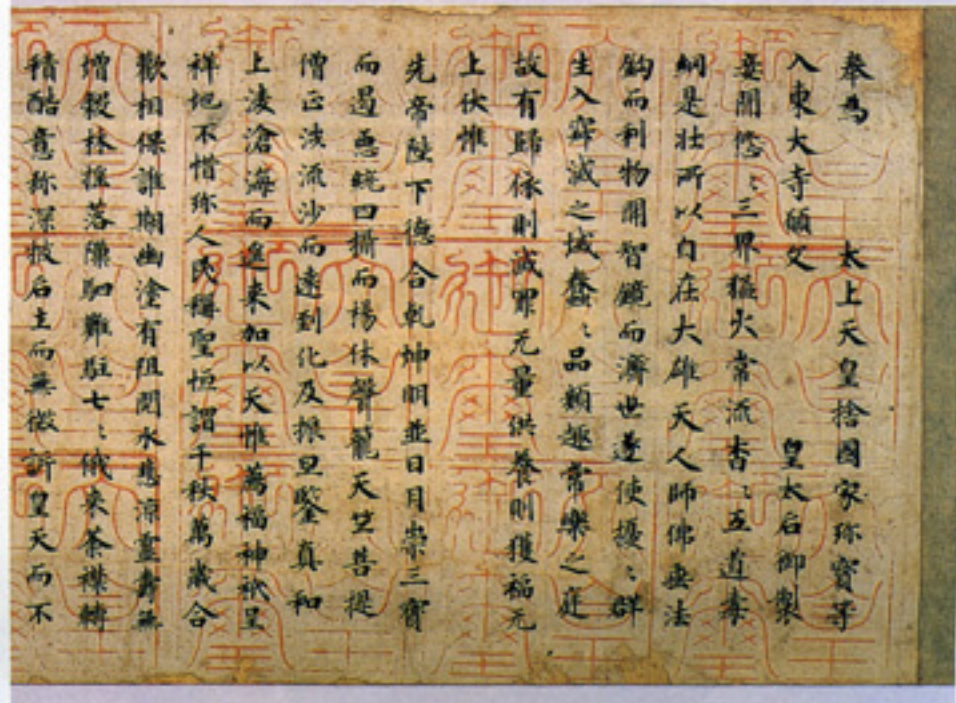 奉為　太上天皇捨國家珎寶等
入東大寺願文　皇太后御製
妾聞悠〻三界猛火常流杳〻五道毒
網是壮所以自在大雄天人師佛垂法
鈎而利物開智鏡而濟世遂使擾〻群
生入寂滅之域蠢〻品類趣常樂之庭
故有歸依則滅罪无量供養則獲福无
上伏惟
先帝陛下德合乾坤明並日月崇三寶
而遏惡統四攝而揚休聲籠天竺菩提
僧正涉流沙而遠到化及振旦鑒真和
上凌滄海而遙来加以天惟薦福神祇呈
祥地不惜珎人民稱聖恒謂千秋萬歲合
歡相保誰期幽塗有阻閱水悲涼靈壽無
增穀林摧落隟駟難駐七〻俄来荼襟轉
積酷意弥深披后土而無徵訴皇天而不